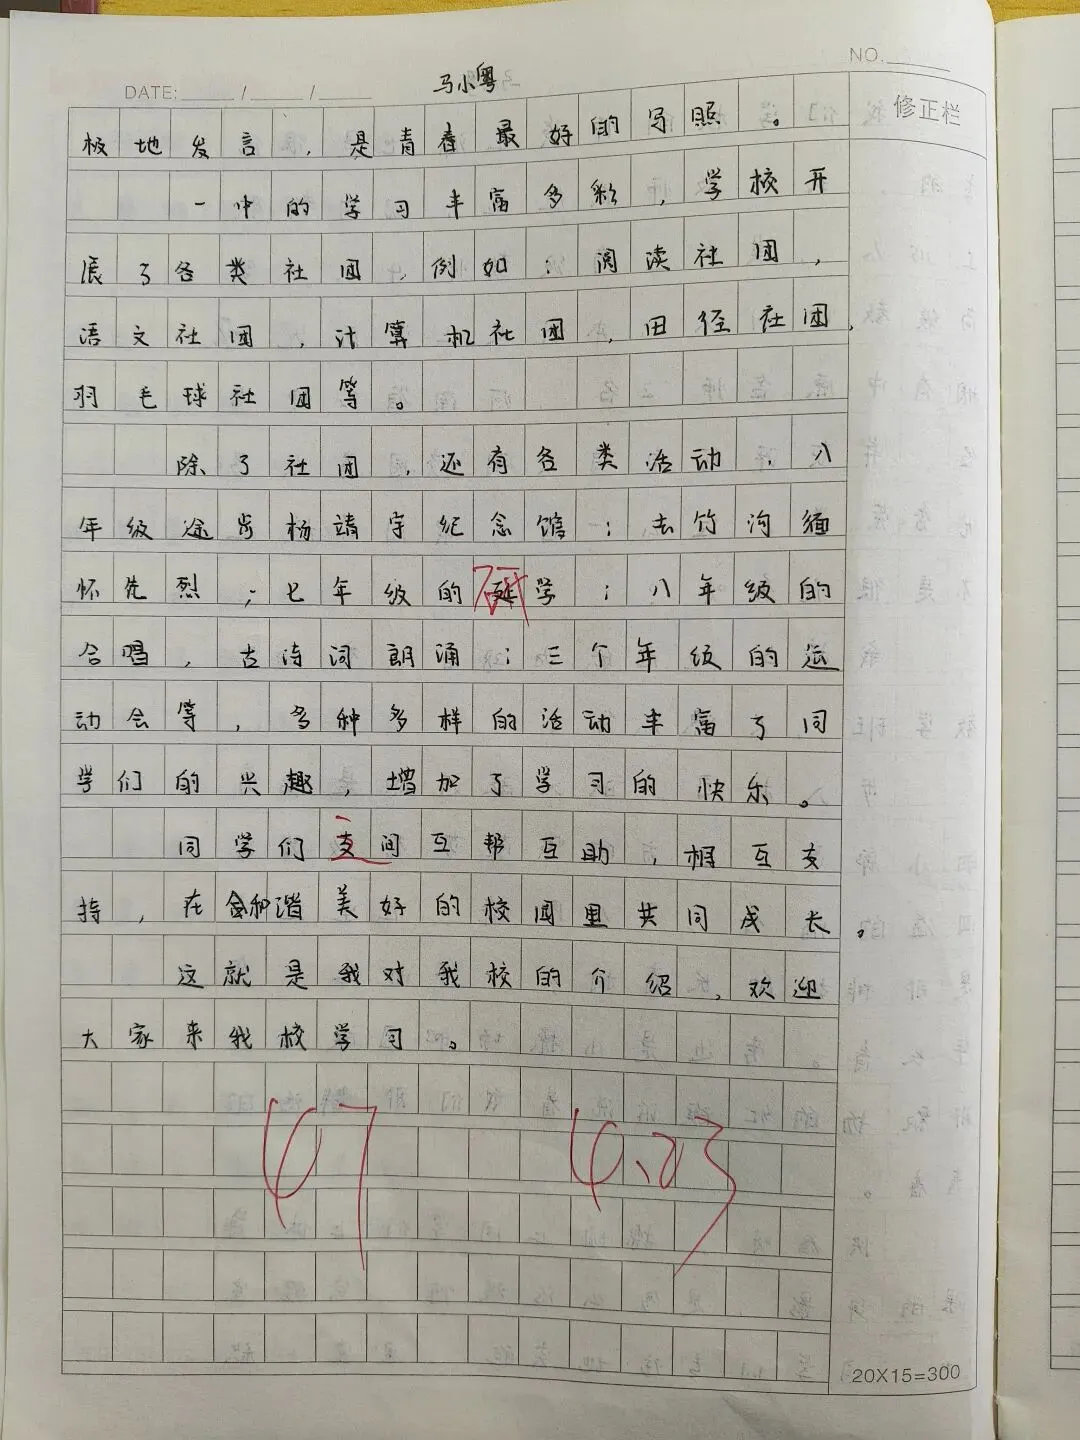 NO.
DATE: / /
马小粤
修正栏
极地发言，是青春最好的写照。
一中的学习丰富多彩，学校开
展了各类社团，例如：阅读社团，
语文社团，计算机社团，田径社团，
羽毛球社团等。
除了社团，还有各类活动，八
年级途步杨靖宇纪念馆；去竹沟缅
怀先烈；七年级的研学；八年级的
合唱，古诗词朗诵；三个年级的运
动会等，多种多样的活动丰富了同
学们的兴趣，增加了学习的快乐。
同学们之间互帮互助，相互支
持，在和谐美好的校园里共同成长。
这就是我对我校的介绍，欢迎
大家来我校学习。
47
4.23
20X15=300